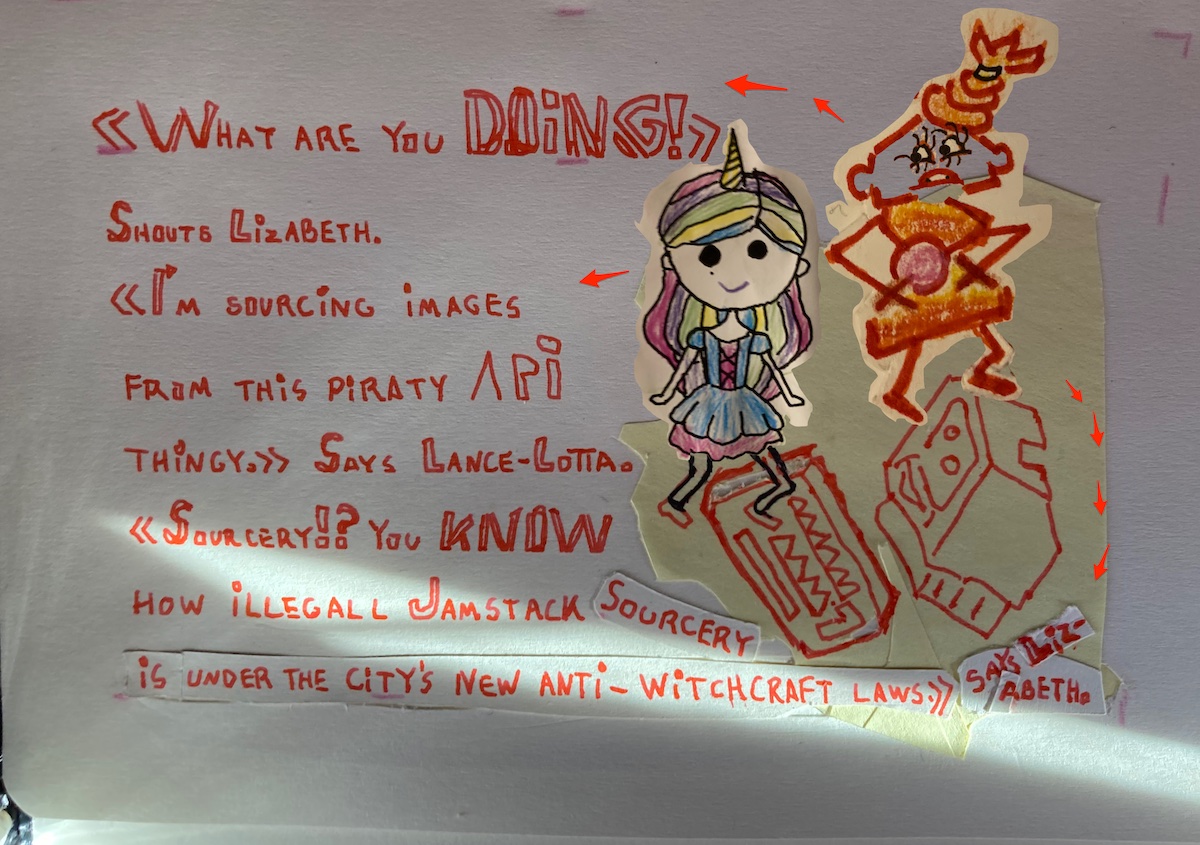 «What are you DOING!»
Shouts Lizabeth.
«I'm sourcing images
from this piraty API
thingy.» Says Lance-Lotta.
«Sourcery!? You KNOW
how illegall Jamstack Sourcery
is under the city's new anti-witchcraft laws.» says Liz-
abeth.